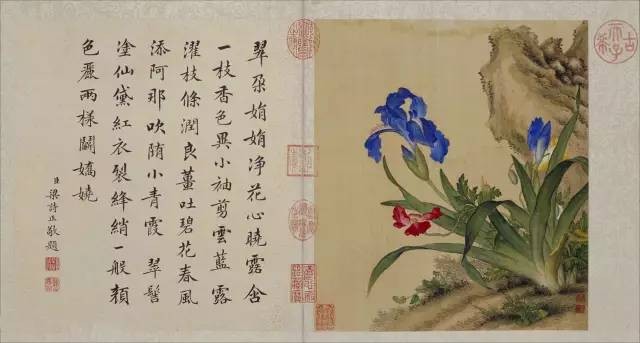 翠朶娟娟净花心曉露含
一枝香色異小袖剪雲藍露
濯枝條潤良薑吐碧花春風
添阿那吹隋小青霞 翠髻
塗仙黛紅衣製絳綃一般顏
色麗兩樣鬪嬌嬈
臣梁詩正敬題
古希天子